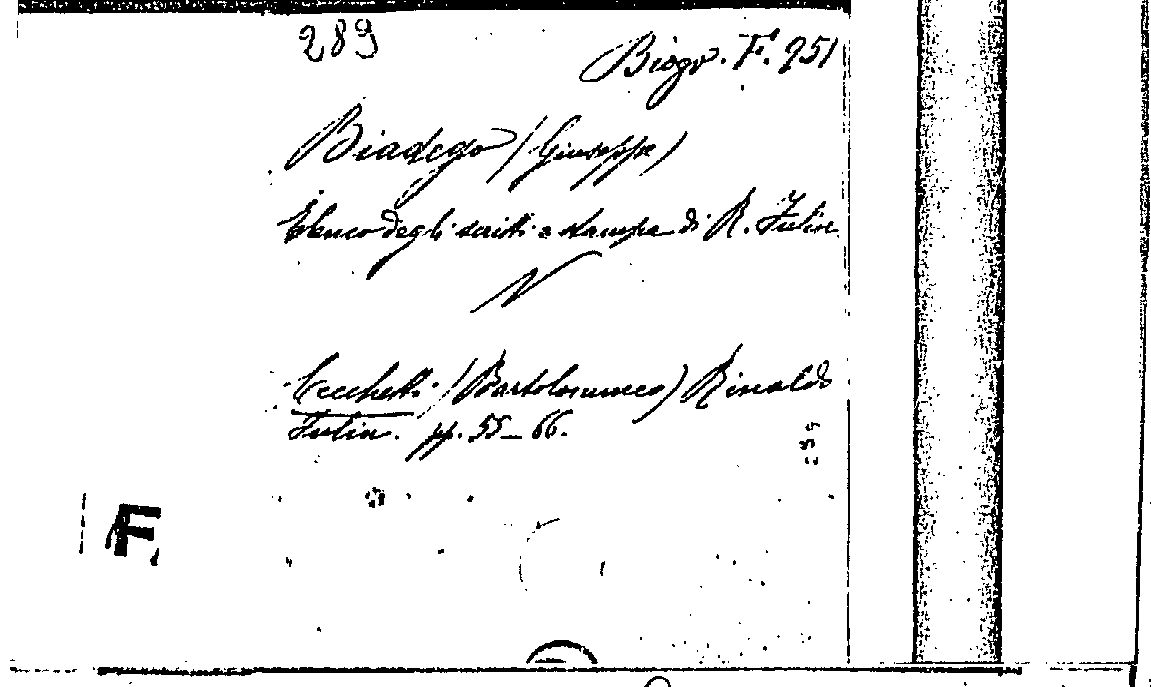 289
Biogr. F. 951
Biadego (Giuseppe)
Elenco degli scritti a stampa di R. Fulin
V
Cecchetti (Bartolommeo) Rinaldo
Fulin. pp. 55-66.
289
F.